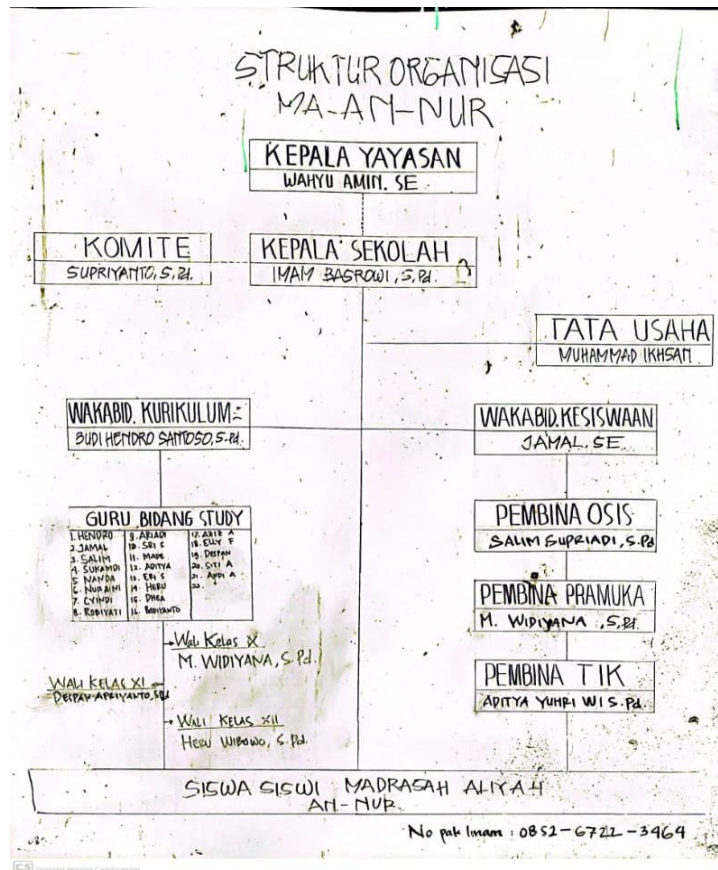 STRUKTUR ORGANISASI
MA-AN-NUR
KEPALA YAYASAN
WAHYU AMIN. SE
KOMITE
SUPRIYANTO, S.Pd.
KEPALA SEKOLAH
IMAM BASROWI, S.Pd.
TATA USAHA
MUHAMMAD IKHSAN
WAKABID. KURIKULUM
BUDI HENDRO SANTOSO, S.Pd.
WAKABID. KESISWAAN
JAMAL. SE
GURU BIDANG STUDY
1. HENDRO
2. JAMAL
3. SALIM
4. SUKAMDI
5 NANDA
6. NURAINI
7. CYINDI
8. ROBIYATI
9. ARIADI
10. SRI S
11. MADE
12. ADITYA
13. ERI S
14. HERU
15. DHEA
16. BUDIYANTO
17. ARIE A
18. ELLY F
19. DESPAN
20. SITI A
21. ANDI A
22.
PEMBINA OSIS
SALIM SUPRIADI, S.Pd
PEMBINA PRAMUKA
M. WIDIYANA, S.Pd.
PEMBINA TIK
ADITYA YUHRI W S.Pd.
Wali Kelas X
M. WIDIYANA, S.Pd.
WALI KELAS XI
DESPAN APRIYANTO, S.Pd
WALI KELAS XII
HERU WIBOWO, S.Pd.
SISWA SISWI MADRASAH ALIYAH
AN-NUR
No pak Imam : 0852-6722-3464
CS